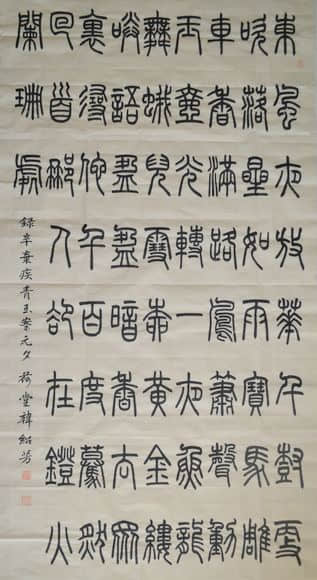 東風夜放華千樹更
吹落星如雨寶馬雕
車香滿路鳳簫聲動
玉壺光轉一夜魚龍
舞蛾兒雪柳黃金縷
笑語盈盈暗香去眾
裏尋他千百度驀然
回首那人卻在鐙火
闌珊處
錄辛棄疾青玉案元夕 荷堂韓紹芳